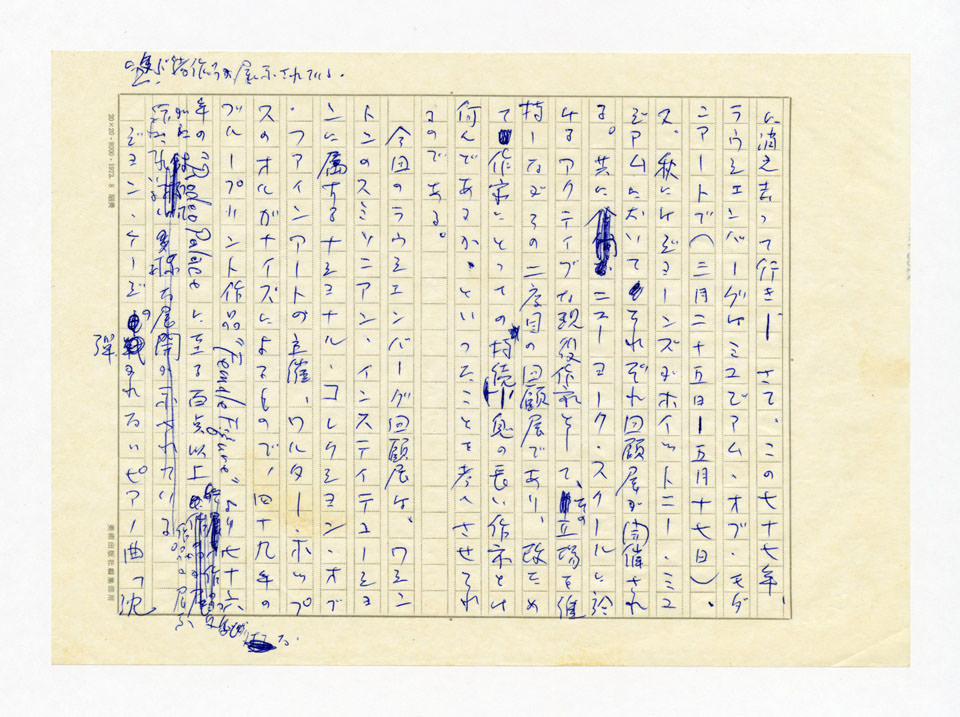 に消え去って行きー さて、この七十七年、
ラウシェンバーグはミュゼアム・オブ・モダ
ンアートで(三月二十五日ー五月十七日)、
ス、秋にはジョーンズがホイットニー・ミュ
ゼアムに於いてそれぞれ回顧展が開催され
る。共に ニューヨーク・スクールに於
けるアクティブな現役作家として、その立場を維
持しながらの二度目の回顧展であり、改め
て作家にとっての持続 息の長い作家とは
何んであるか、といったことを考へさせられ
るのである。
今回のラウシェンバーグ回顧展は、ワシン
トンのスミソニアン・インスティテューショ
ンに属するナショナル・コレクション・オブ
・ファインアートの主催、ワルター・ホップ
スのオルガナイズによるもので、四十九年の
ブループリント作品"Female Figure"より七十六
年の"Rodeo Palace"に至る百点以上
多様な展開が示されている
ジョン・ケージの弾まれるピアノ曲「沈
展示されている。
20×20・8000・1973. 8 昭兆
美術出版社編集部用